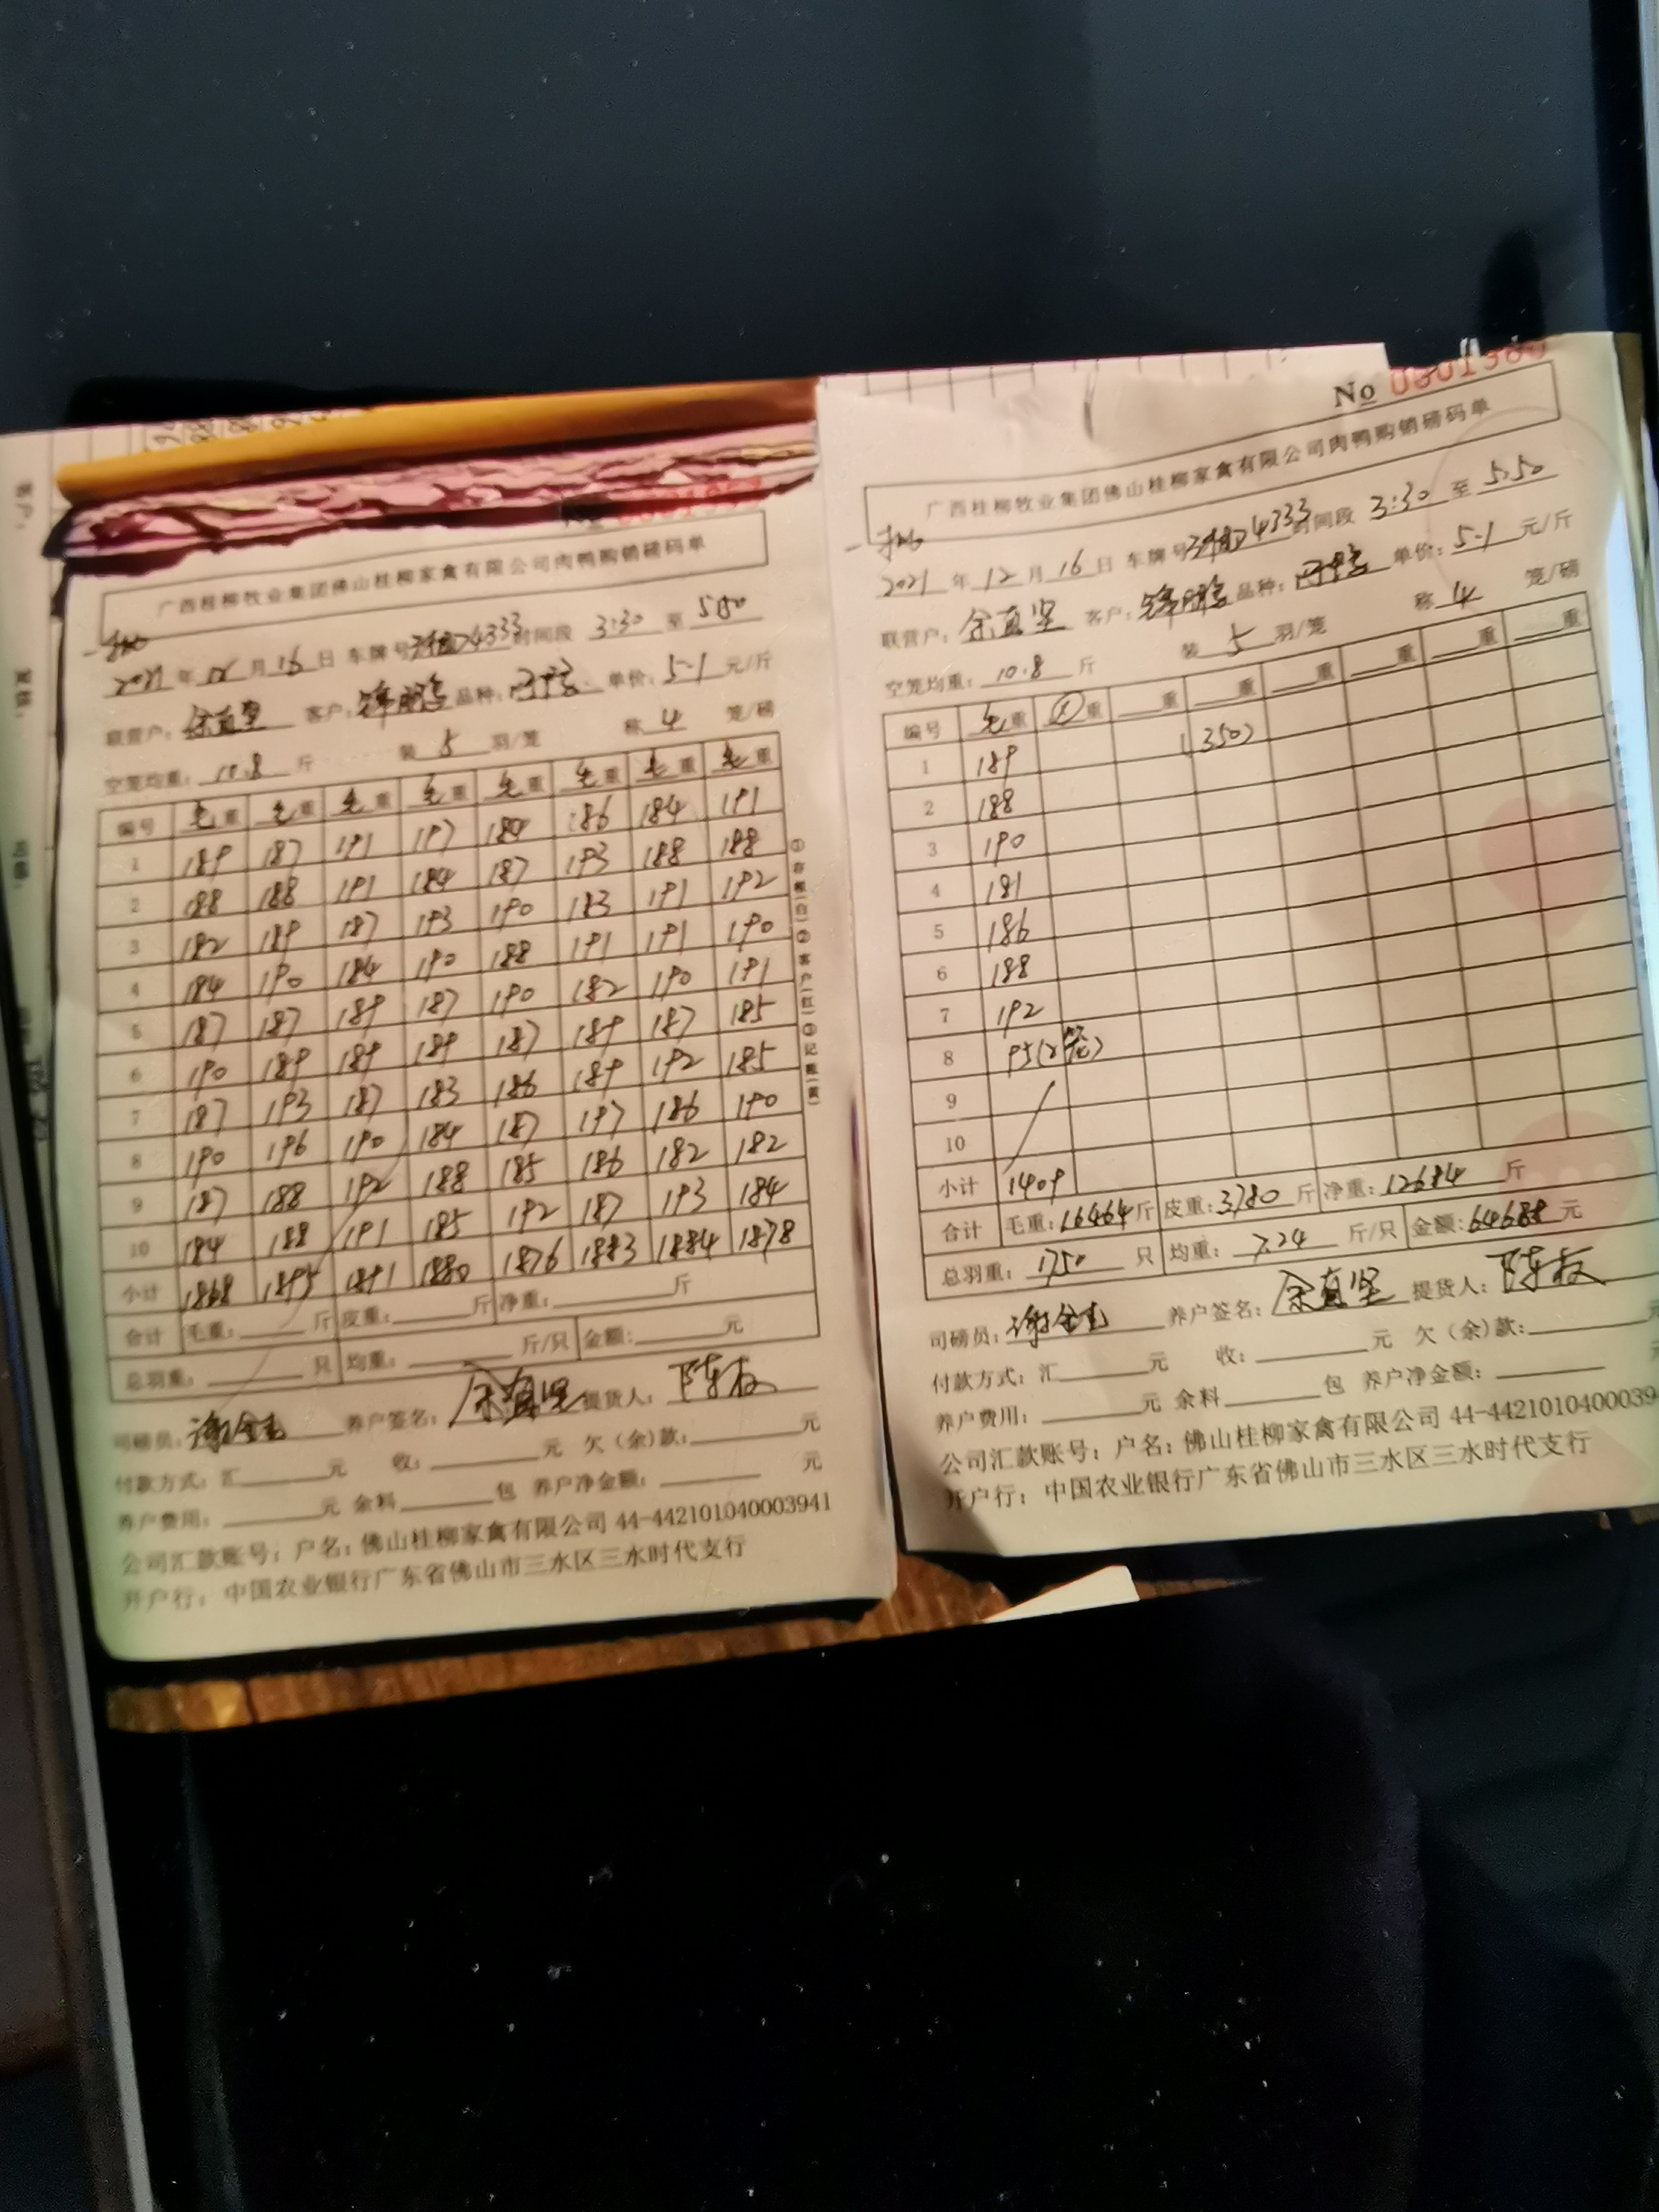 广西桂柳牧业集团佛山桂柳家禽有限公司肉鸭购销磅码单
2021年12月16日 车牌号 4333 时间段 3:30 至 5:50
联营户：余真坚 客户： 品种： 单价：5.1元/斤
空笼均重：10.8斤 装5羽/笼 称4笼/磅
编号 毛重 毛重 毛重 毛重 毛重 毛重 毛重 毛重
1 189 187 191 197 184 186 184 191
2 188 188 191 184 187 193 188 188
3 182 189 187 193 190 183 191 192
4 184 190 184 190 188 191 191 190
5 187 187 189 187 190 182 190 191
6 190 189 189 189 187 189 187 185
7 187 193 187 183 186 189 192 185
8 190 196 190 184 187 197 186 190
9 187 188 192 188 185 186 182 182
10 184 188 191 185 192 187 193 184
小计 1868 1895 1891 1880 1876 1883 1884 1878
合计 毛重： 斤 皮重： 斤 净重： 斤
总羽重： 只 均重： 斤/只 金额： 元
司磅员： 养户签名：余真坚 提货人：
付款方式：汇 元 收： 元 欠（余）款： 元
养户费用： 元 余料 包 养户净金额： 元
公司汇款账号：户名：佛山桂柳家禽有限公司 44-442101040003941
开户行：中国农业银行广东省佛山市三水区三水时代支行
①存根(白)②客户(红)③记账(黄)
No 0001380
广西桂柳牧业集团佛山桂柳家禽有限公司肉鸭购销磅码单
2021年12月16日 车牌号 4333 时间段 3:30 至 5:50
联营户：余真坚 客户： 品种： 单价：5.1元/斤
空笼均重：10.8斤 装5羽/笼 称4笼/磅
编号 毛重 重 重 重 重 重 重 重
1 189 (350)
2 188
3 190
4 181
5 186
6 188
7 192
8 95(2笼)
9
10
小计 1409
合计 毛重：16464斤 皮重：3780斤 净重：12684斤
总羽重：1750只 均重：7.24斤/只 金额：64688元
司磅员： 养户签名：余真坚 提货人：
付款方式：汇 元 收： 元 欠（余）款： 元
养户费用： 元 余料 包 养户净金额： 元
公司汇款账号：户名：佛山桂柳家禽有限公司 44-4421010400039
开户行：中国农业银行广东省佛山市三水区三水时代支行